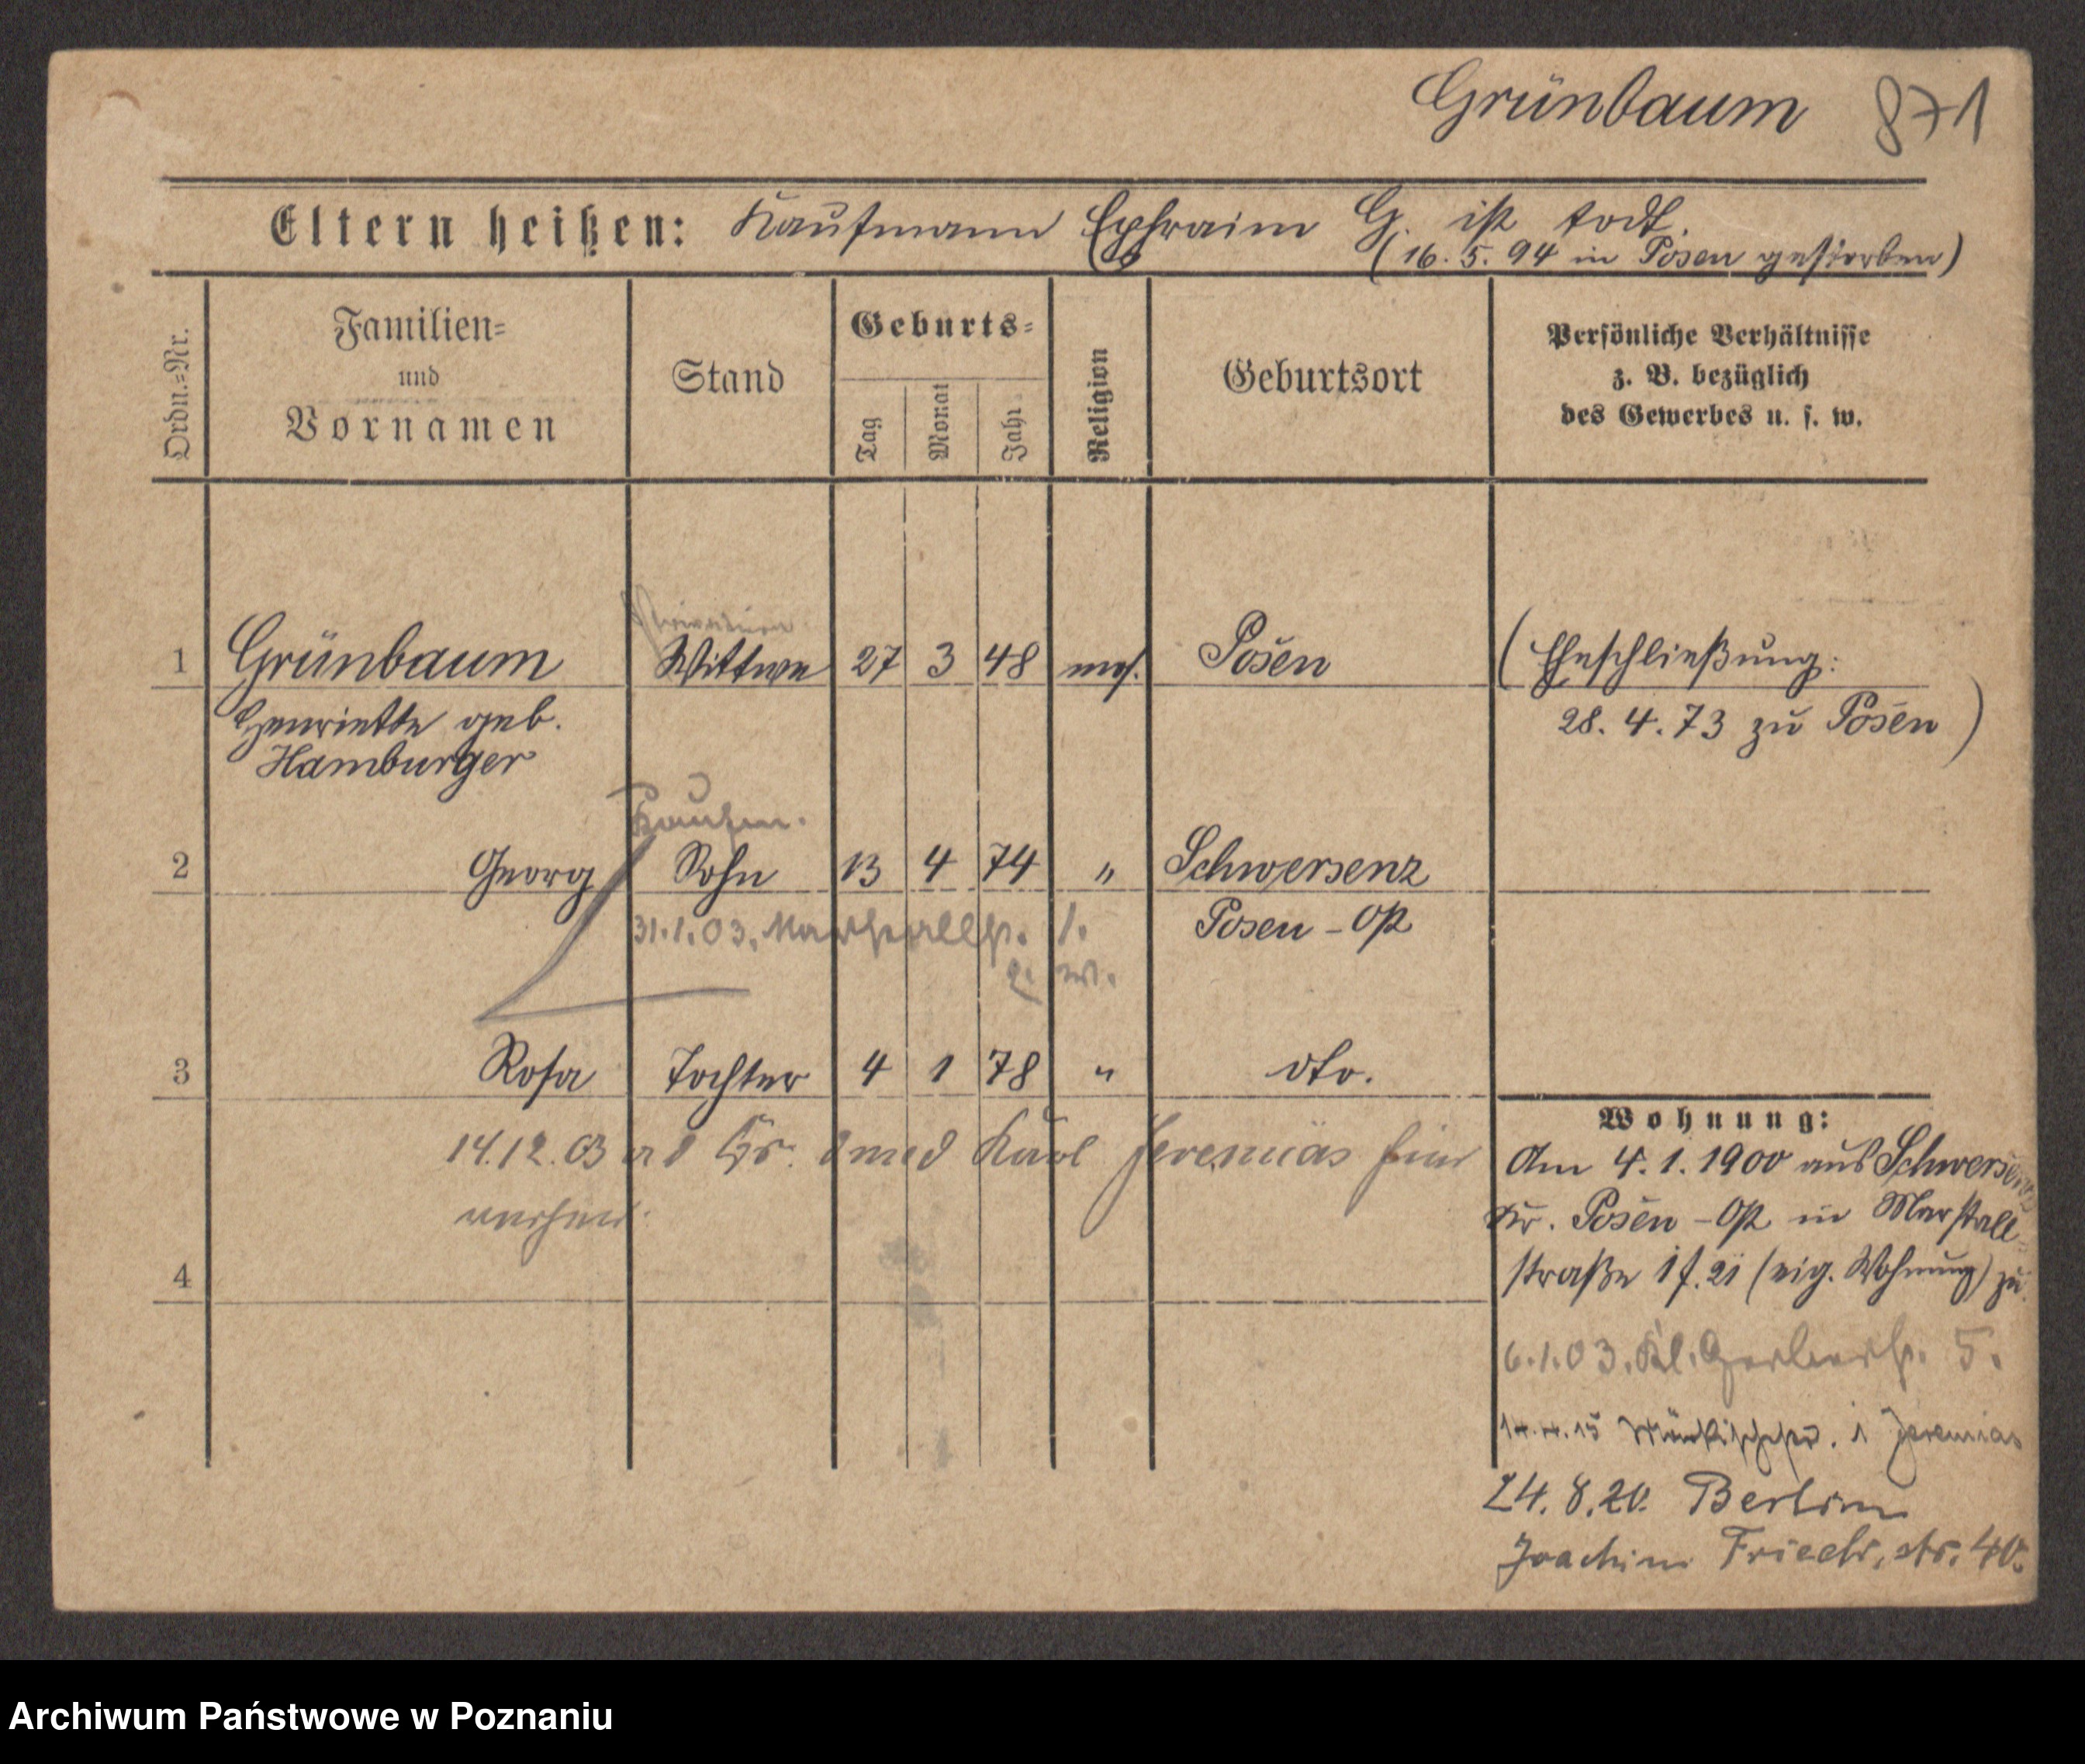 Grünbaum 871
Eltern heißen: Kaufmann Ephraim G. ist todt.
(16. 5. 94 in Posen gestorben)
Ordn.=Nr.
Familien=
und
Vornamen
Stand
Geburts=
Tag
Monat
Jahr
Religion
Geburtsort
Persönliche Verhältnisse
z. B. bezüglich
des Gewerbes u. s. w.
1 Grünbaum Wittwe 27 3 48 mos. Posen (Eheschließung:
Henriette geb. 28. 4. 73 zu Posen)
Hamburger
Kaufm.
2 Georg Sohn 13 4 74 " Schwersenz
31.1.03. Marstallstr. 1. Posen - Ost
3 Rosa Tochter 4 1 78 " dto.
Wohnung:
14.12.03 Karl Jeremias hier
verheir.
Am 4. 1. 1900 aus Schwersenz
Kr. Posen - Ost in Marstall=
straße 1 (eig. Wohnung) zu
4
6.1.03. Kl. Gerberstr. 5.
14.4.15 1 Jeremias
24. 8. 20. Berlin
Joachim Friedr. str. 40.
Archiwum Państwowe w Poznaniu